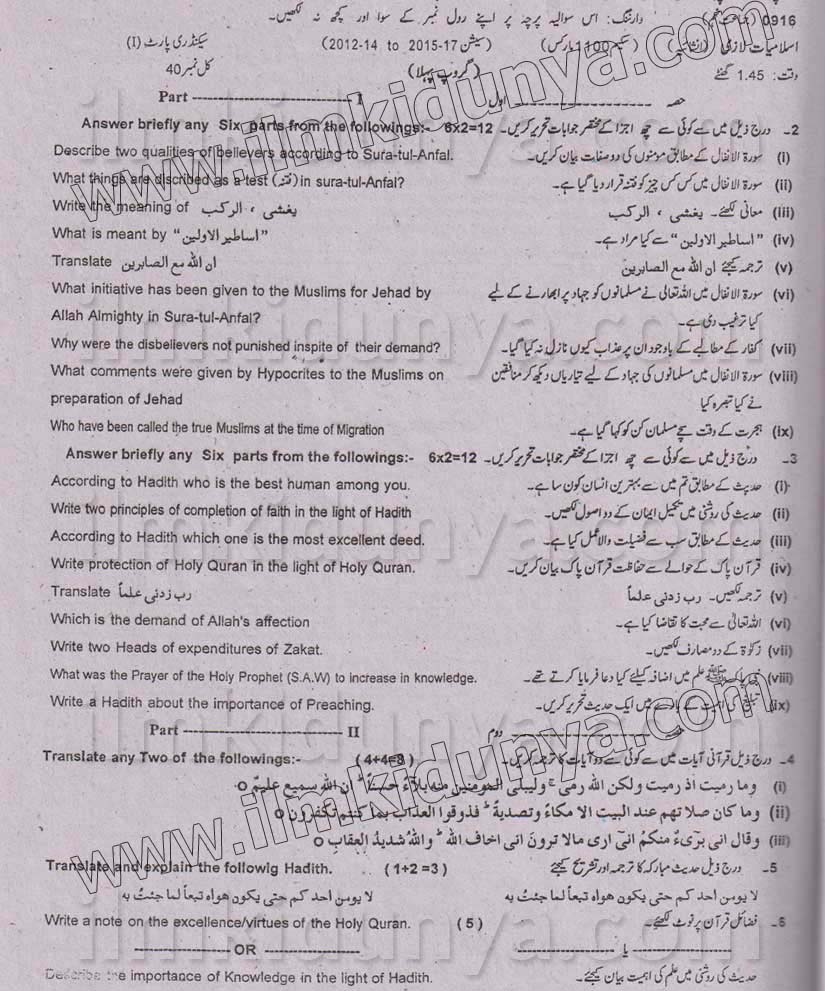 0916 وارننگ: اس سوالیہ پرچہ پر اپنے رول نمبر کے سوا اور کچھ نہ لکھیں۔
اسلامیات لازمی (انشائیہ) (سکیم 1100 مارکس) (سیشن 17-2015 to 2012-14) سیکنڈری پارٹ (I)
وقت: 1.45 گھنٹے (گروپ پہلا) کل نمبر 40
Part ---------- I حصہ ---------- اول
Answer briefly any Six parts from the followings:- 6x2=12 2۔ درج ذیل میں سے کوئی سے چھ اجزا کے مختصر جوابات تحریر کریں۔
Describe two qualities of believers according to Sura-tul-Anfal. (i) سورۃ الانفال کے مطابق مومنوں کی دو صفات بیان کریں۔
What things are discribed as a test (فتنہ) in sura-tul-Anfal? (ii) سورۃ الانفال میں کس کس چیز کو فتنہ قرار دیا گیا ہے۔
Write the meaning of یغشی ، الرکب (iii) معانی لکھئے۔ یغشی ، الرکب
What is meant by “اساطیر الاولین” (iv) “اساطیر الاولین” سے کیا مراد ہے۔
Translate ان اللہ مع الصابرین (v) ترجمہ کیجئے ان اللہ مع الصابرین
What initiative has been given to the Muslims for Jehad by (vi) سورۃ الانفال میں اللہ تعالیٰ نے مسلمانوں کو جہاد پر ابھارنے کے لیے
Allah Almighty in Sura-tul-Anfal? کیا ترغیب دی ہے۔
Why were the disbelievers not punished inspite of their demand? (vii) کفار کے مطالبے کے باوجود ان پر عذاب کیوں نازل نہ کیا گیا۔
What comments were given by Hypocrites to the Muslims on (viii) سورۃ الانفال میں مسلمانوں کی جہاد کے لیے تیاریاں دیکھ کر منافقین
preparation of Jehad نے کیا تبصرہ کیا
Who have been called the true Muslims at the time of Migration (ix) ہجرت کے وقت سچے مسلمان کن کو کہا گیا ہے۔
Answer briefly any Six parts from the followings:- 6x2=12 3۔ درج ذیل میں سے کوئی سے چھ اجزا کے مختصر جوابات تحریر کریں۔
According to Hadith who is the best human among you. (i) حدیث کے مطابق تم میں سے بہترین انسان کون سا ہے۔
Write two principles of completion of faith in the light of Hadith (ii) حدیث کی روشنی میں تکمیل ایمان کے دو اصول لکھیں۔
According to Hadith which one is the most excellent deed. (iii) حدیث کے مطابق سب سے فضیلت والا عمل کیا ہے۔
Write protection of Holy Quran in the light of Holy Quran. (iv) قرآن پاک کے حوالے سے حفاظت قرآن پاک بیان کریں۔
Translate رب زدنی علماً (v) ترجمہ لکھیں۔ رب زدنی علماً
Which is the demand of Allah's affection (vi) اللہ تعالیٰ سے محبت کا تقاضا کیا ہے۔
Write two Heads of expenditures of Zakat. (vii) زکوٰۃ کے دو مصارف لکھیں۔
What was the Prayer of the Holy Prophet (S.A.W) to increase in knowledge. (viii) ﷺ علم میں اضافہ کیلئے کیا دعا فرمایا کرتے تھے۔
Write a Hadith about the importance of Preaching. (ix) تبلیغ کی اہمیت کے بارے میں ایک حدیث تحریر کریں۔
Part ---------- II ---------- دوم
Translate any Two of the followings:- (4+4=8) 4۔ درج ذیل قرآنی آیات میں سے کوئی سے دو آیات کا ترجمہ کریں۔
(i) وما رمیت اذ رمیت ولکن اللہ رمی ج ولیبلی المومنین منہ بلاءً حسناً ط ان اللہ سمیع علیمٌ o
(ii) وما کان صلا تھم عند البیت الا مکاءً وتصدیۃً ط فذوقوا العذاب بما کنتم تکفرون o
(iii) وقال انی بریءٌ منکم انی اری مالا ترون انی اخاف اللہ ط واللہ شدیدُ العقاب o
Translate and explain the followig Hadith. (1+2=3) 5۔ درج ذیل حدیث مبارکہ کا ترجمہ اور تشریح کیجئے
لا یومن احد کم حتی یکون ھواہ تبعاً لما جئتُ بہ لا یومن احد کم حتی یکون ھواہ تبعاً لما جئتُ بہ
Write a note on the excellence/virtues of the Holy Quran. (5) 6۔ فضائل قرآن پر نوٹ لکھئے۔
---------- OR ---------- ---------- یا ----------
Describe the importance of Knowledge in the light of Hadith. حدیث کی روشنی میں علم کی اہمیت بیان کیجئے۔
www.ilmkidunya.com
www.ilmkidunya.com
ilmkidunya.com
ilmkidunya.com
ilmkidunya.com